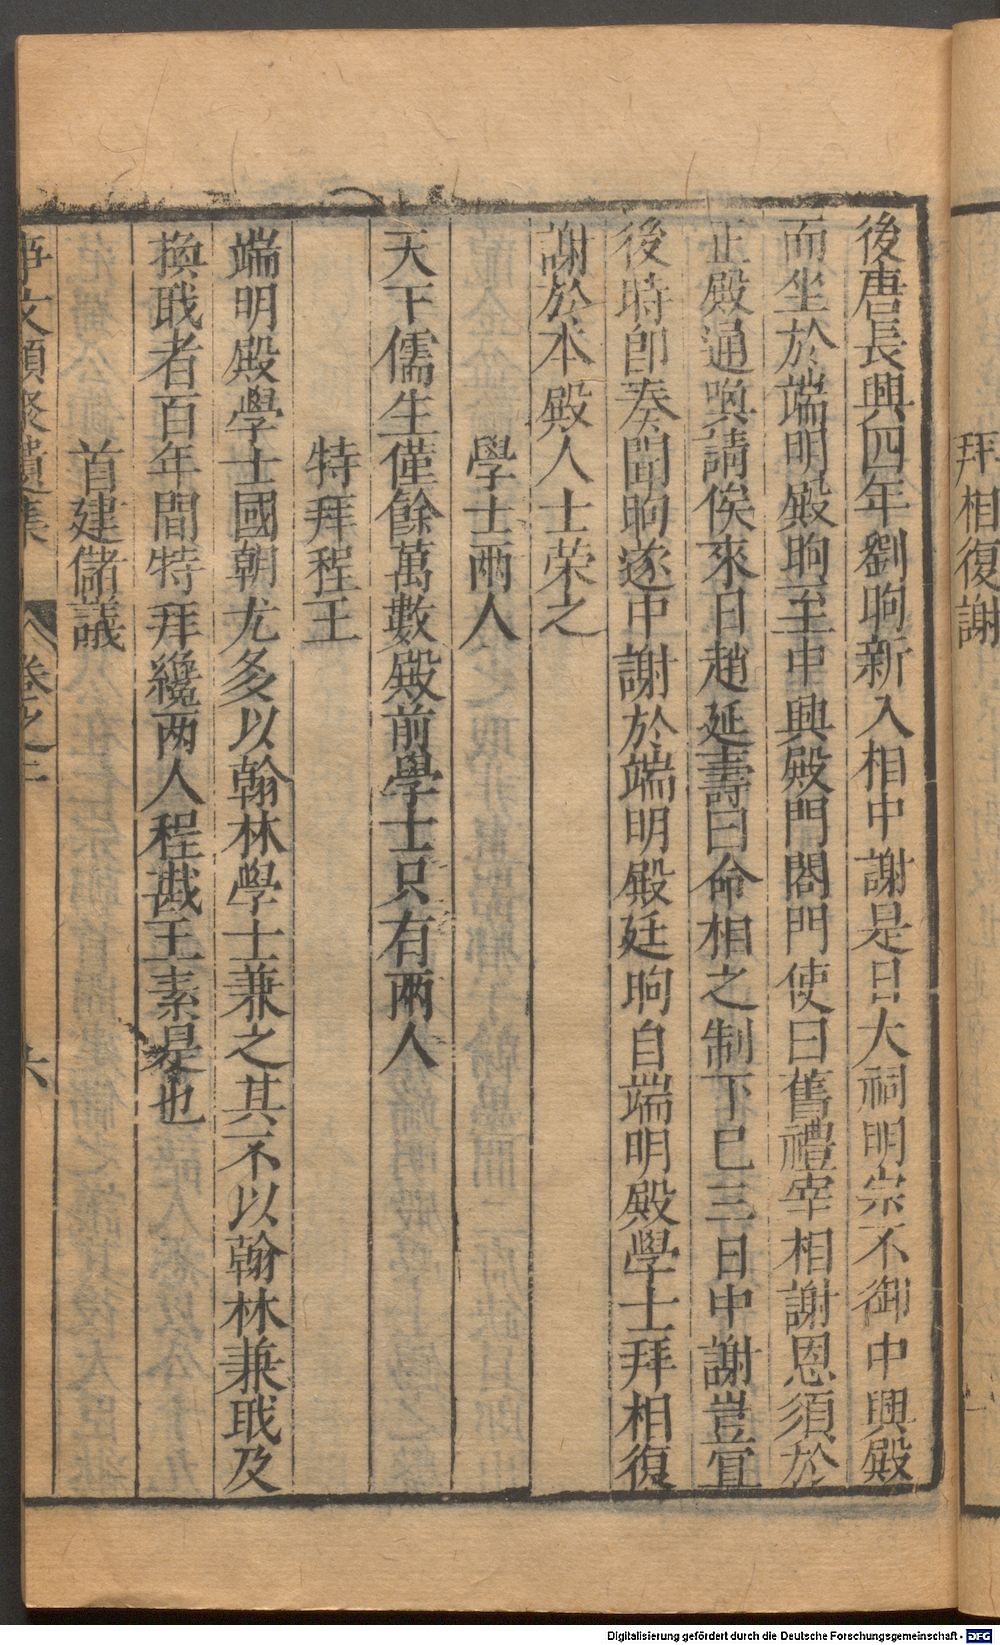 拜相復謝
後唐長興四年劉昫新入相中謝是日大祠明宗不御中興殿
而坐於端明殿昫至中興殿門閤門使曰舊禮宰相謝恩須於
正殿通喚請俟來日趙延壽曰命相之制下已三日中謝豈宜
後時卽奏聞昫遂中謝於端明殿廷昫自端明殿學士拜相復
謝於本殿人士荣之
學士兩人
天下儒生僅餘萬數殿前學士只有兩人
特拜程王
端明殿學士國朝尤多以翰林學士兼之其不以翰林兼戝及
換戝者百年間特拜纔兩人程戡王素是也
首建儲議
事文類聚遺集 卷之二 六
Digitalisierung gefördert durch die Deutsche Forschungsgemeinschaft - DFG